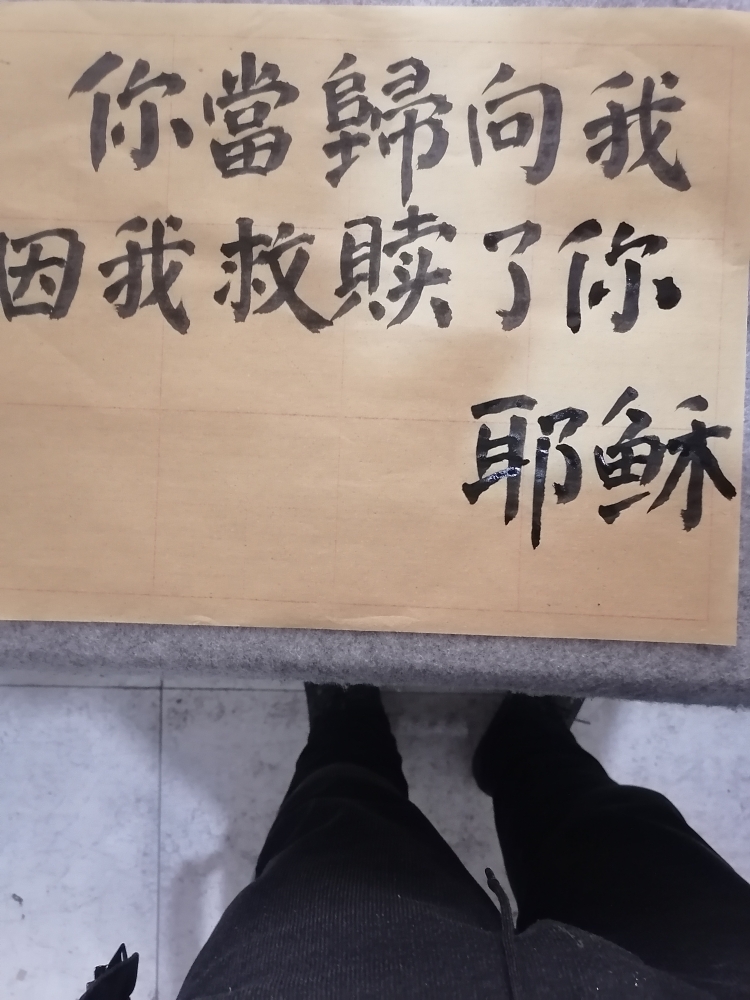 你當歸向我
因我救贖了你
耶稣